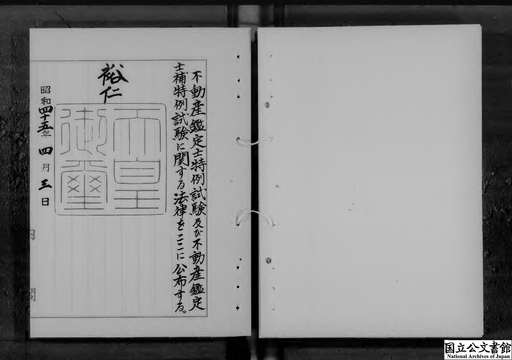 不動産鑑定士特例試験及び不動産鑑定
士補特例試験に関する法律をここに公布する。
裕仁
天皇
御璽
昭和四十五年四月三日
国立公文書館
National Archives of Japan